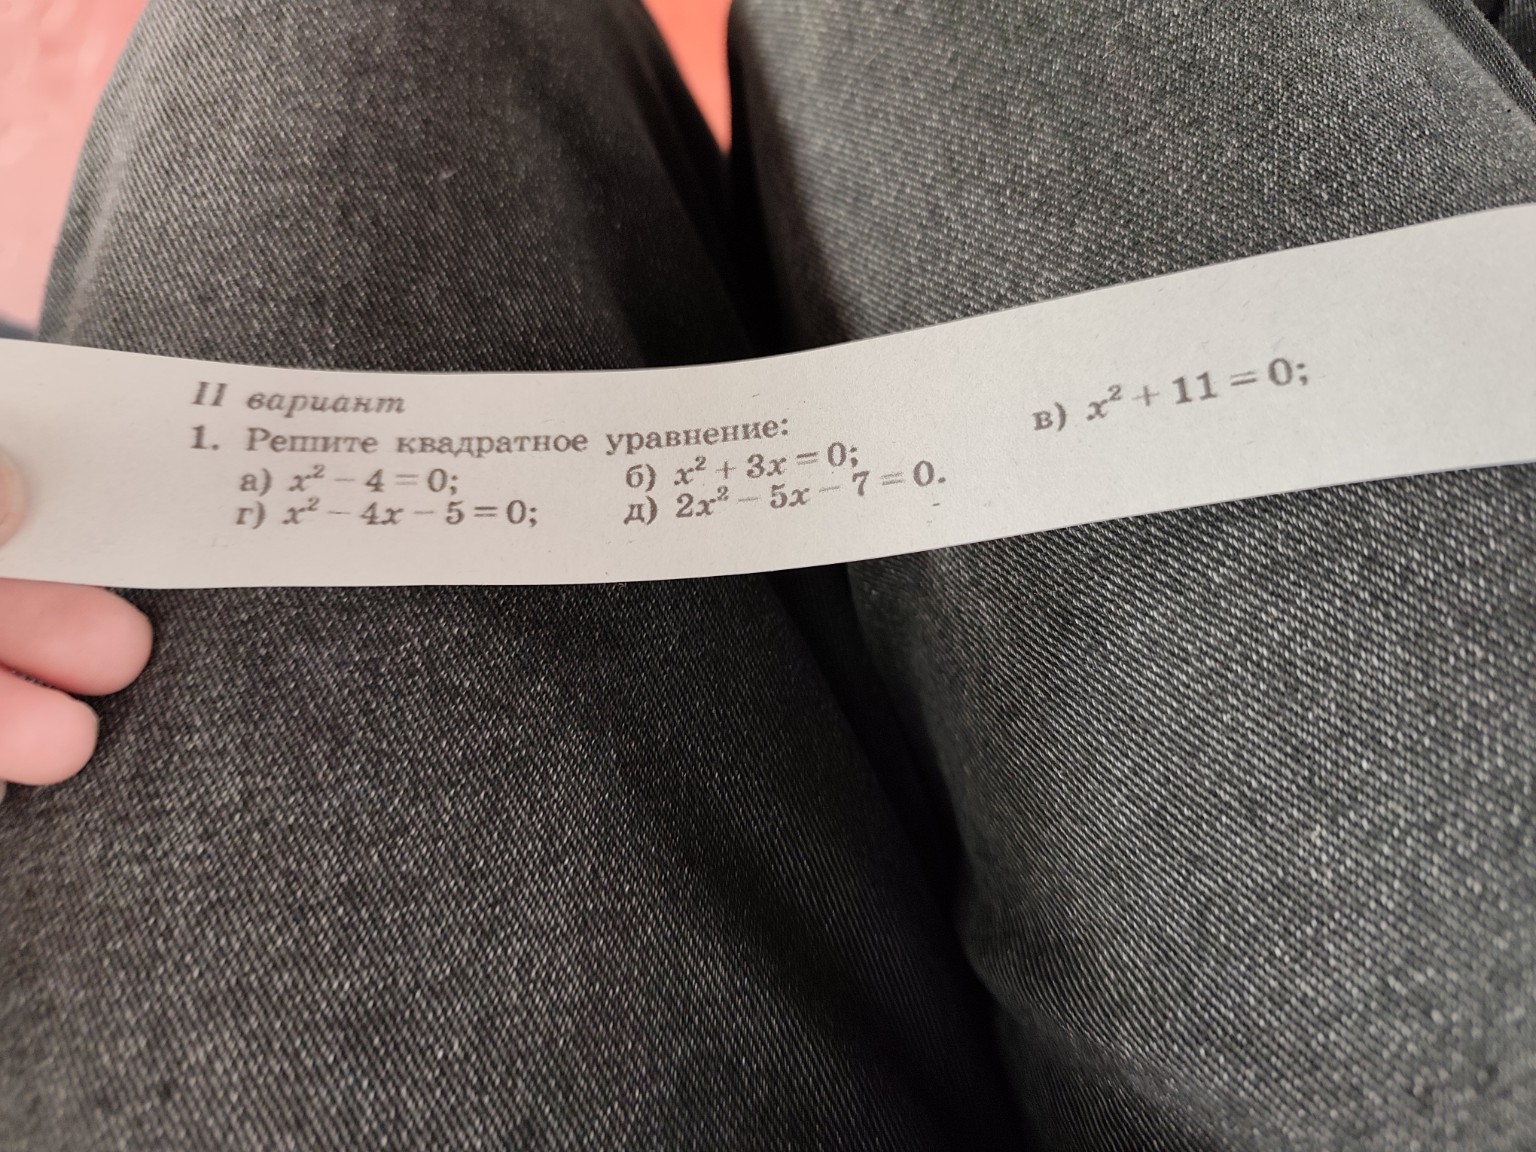 II вариант
1. Решите квадратное уравнение:
а) x² − 4 = 0; б) x² + 3x = 0; в) x² + 11 = 0;
г) x² − 4x − 5 = 0; д) 2x² − 5x − 7 = 0.